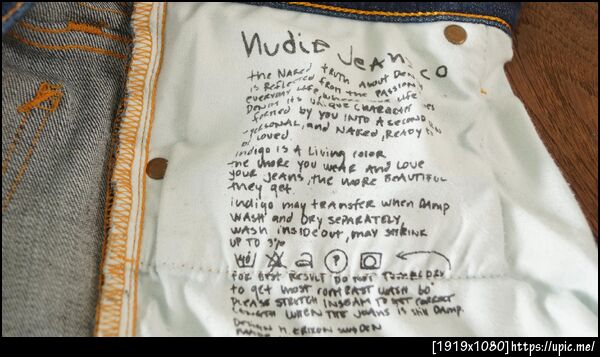 Nudie Jeans co
the NAKED truth About DENIM
is Reflected from the PASSION
EVERYDAY LIFE, LIFE
DENIM its UNIQUE CHARACTER
formed by you INTO A SECOND
PERSONAL, and NAKED, READY
LOVED.
indigo is A Living color
the more you WEAR and LOVE
your JEANS, the more BEAUTIFUL
they get.
indigo may TRANSFER when DAMP
WASH and DRY SEPARATELY,
WASH insideout, may SHRINK
UP TO 3%
for BEST RESULT DO NOT TUMBLE DRY
to get most contrast WASH 60°
PLEASE STRETCH INSEAM TO GET CORRECT
LENGTH WHEN THE JEANS is still DAMP.
DESIGN M. ERIXON SWEDEN
[1919x1080]https://upic.me/